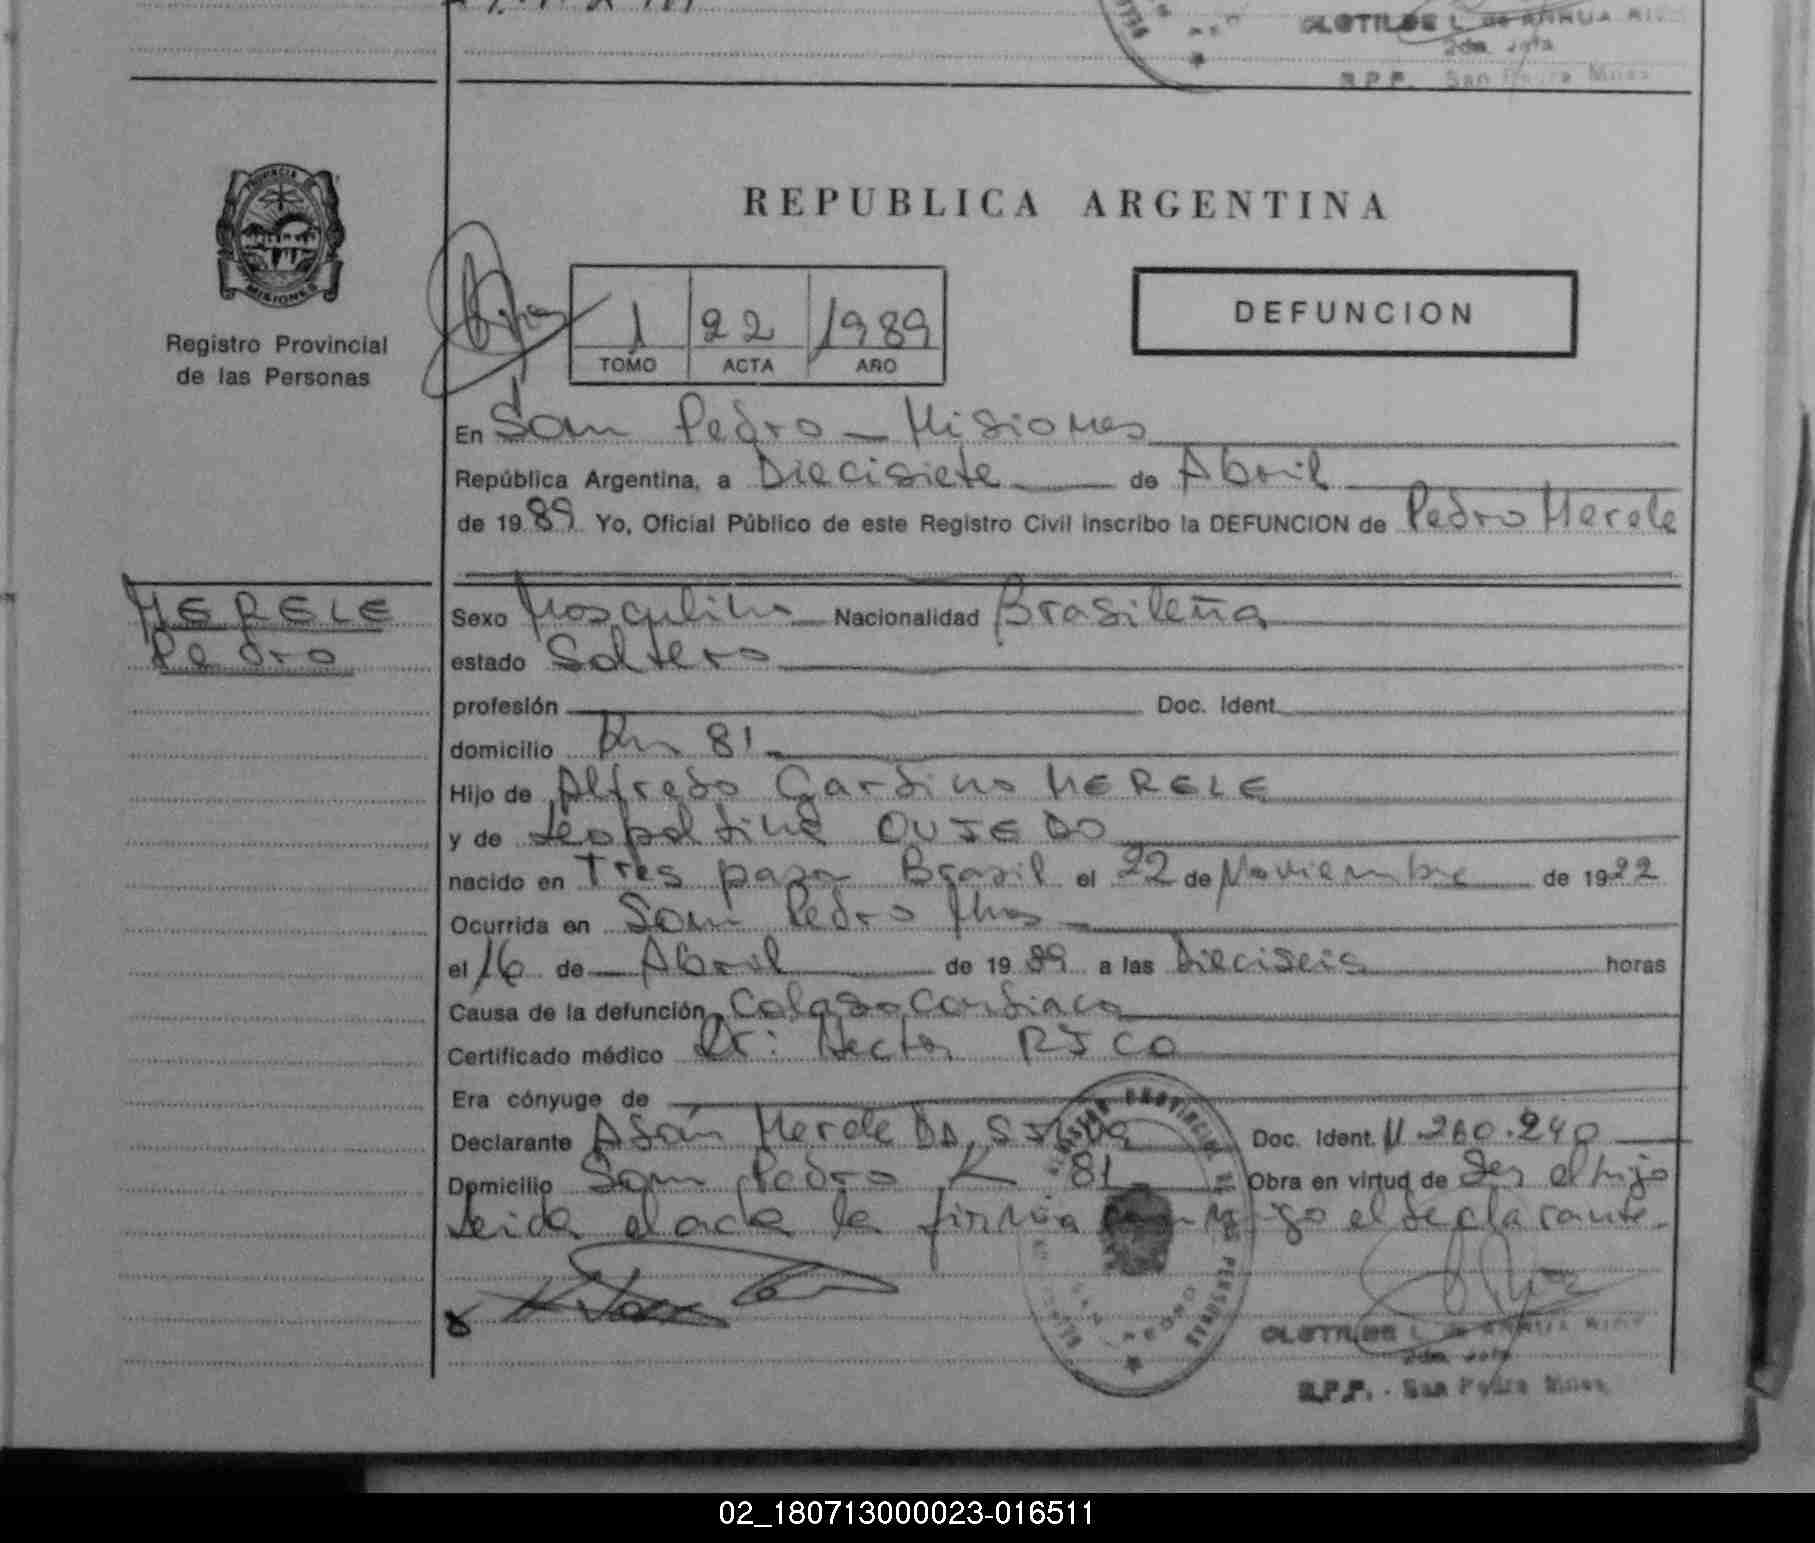 CLOTILDE L. de
2da. Jefa
R.P.P. San Pedro Mnes
PROVINCIA DE
MISIONES
Registro Provincial
de las Personas
REPUBLICA ARGENTINA
1 22 1989
TOMO ACTA AÑO
DEFUNCION
En San Pedro - Misiones
República Argentina, a Diecisiete de Abril
de 1989 Yo, Oficial Público de este Registro Civil inscribo la DEFUNCION de Pedro Merele
MERELE
Pedro
Sexo Masculino Nacionalidad Brasileña
estado Soltero
profesión Doc. Ident.
domicilio Km 81
Hijo de Alfredo Gardino MERELE
y de Leopoldina OVIEDO
nacido en Tres paso Brasil el 22 de Noviembre de 1922
Ocurrida en San Pedro Mnes
el 16 de Abril de 1989 a las Dieciseis horas
Causa de la defunción Colapso Cardiaco
Certificado médico Dr: Hector RICO
Era cónyuge de
Declarante Adán Merele DA SILVA Doc. Ident. 11.260.240
Domicilio San Pedro K 81 Obra en virtud de Ser el hijo
Leida el acta la firma conmigo el declarante.
CLOTILDE L. de
2da. Jefa
R.P.P. - San Pedro Mnes
02_180713000023-016511